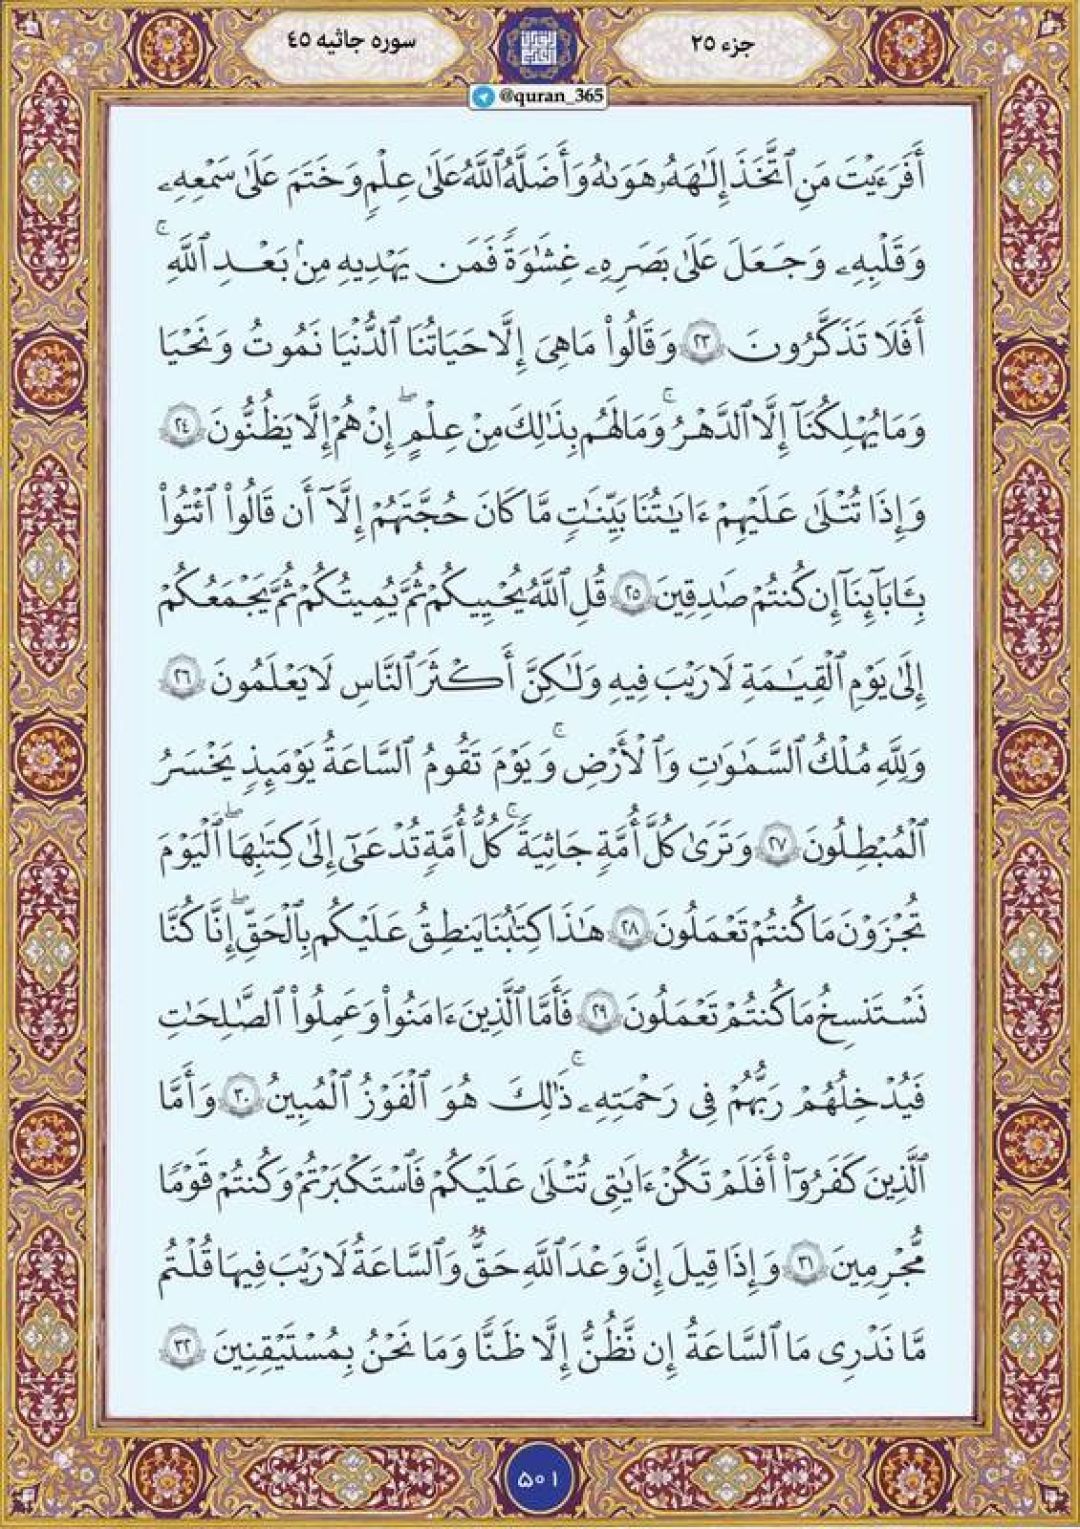 جزء ۲۵
سوره جاثیه ۴۵
@quran_365
أَفَرَءَيْتَ مَنِ ٱتَّخَذَ إِلَٰهَهُۥ هَوَىٰهُ وَأَضَلَّهُ ٱللَّهُ عَلَىٰ عِلْمٍ وَخَتَمَ عَلَىٰ سَمْعِهِۦ
وَقَلْبِهِۦ وَجَعَلَ عَلَىٰ بَصَرِهِۦ غِشَٰوَةً فَمَن يَهْدِيهِ مِنۢ بَعْدِ ٱللَّهِ ۚ
أَفَلَا تَذَكَّرُونَ ۲۳ وَقَالُوا۟ مَا هِىَ إِلَّا حَيَاتُنَا ٱلدُّنْيَا نَمُوتُ وَنَحْيَا
وَمَا يُهْلِكُنَآ إِلَّا ٱلدَّهْرُ ۚ وَمَا لَهُم بِذَٰلِكَ مِنْ عِلْمٍ ۖ إِنْ هُمْ إِلَّا يَظُنُّونَ ۲٤
وَإِذَا تُتْلَىٰ عَلَيْهِمْ ءَايَٰتُنَا بَيِّنَٰتٍ مَّا كَانَ حُجَّتَهُمْ إِلَّآ أَن قَالُوا۟ ٱئْتُوا۟
بِـَٔابَآئِنَآ إِن كُنتُمْ صَٰدِقِينَ ۲۵ قُلِ ٱللَّهُ يُحْيِيكُمْ ثُمَّ يُمِيتُكُمْ ثُمَّ يَجْمَعُكُمْ
إِلَىٰ يَوْمِ ٱلْقِيَٰمَةِ لَا رَيْبَ فِيهِ وَلَٰكِنَّ أَكْثَرَ ٱلنَّاسِ لَا يَعْلَمُونَ ۲٦
وَلِلَّهِ مُلْكُ ٱلسَّمَٰوَٰتِ وَٱلْأَرْضِ ۚ وَيَوْمَ تَقُومُ ٱلسَّاعَةُ يَوْمَئِذٍ يَخْسَرُ
ٱلْمُبْطِلُونَ ۲۷ وَتَرَىٰ كُلَّ أُمَّةٍ جَاثِيَةً ۚ كُلُّ أُمَّةٍ تُدْعَىٰٓ إِلَىٰ كِتَٰبِهَا ۖ ٱلْيَوْمَ
تُجْزَوْنَ مَا كُنتُمْ تَعْمَلُونَ ۲۸ هَٰذَا كِتَٰبُنَا يَنطِقُ عَلَيْكُم بِٱلْحَقِّ ۖ إِنَّا كُنَّا
نَسْتَنسِخُ مَا كُنتُمْ تَعْمَلُونَ ۲۹ فَأَمَّا ٱلَّذِينَ ءَامَنُوا۟ وَعَمِلُوا۟ ٱلصَّٰلِحَٰتِ
فَيُدْخِلُهُمْ رَبُّهُمْ فِى رَحْمَتِهِۦ ۚ ذَٰلِكَ هُوَ ٱلْفَوْزُ ٱلْمُبِينُ ۳۰ وَأَمَّا
ٱلَّذِينَ كَفَرُوٓا۟ أَفَلَمْ تَكُنْ ءَايَٰتِى تُتْلَىٰ عَلَيْكُمْ فَٱسْتَكْبَرْتُمْ وَكُنتُمْ قَوْمًا
مُّجْرِمِينَ ۳۱ وَإِذَا قِيلَ إِنَّ وَعْدَ ٱللَّهِ حَقٌّ وَٱلسَّاعَةُ لَا رَيْبَ فِيهَا قُلْتُم
مَّا نَدْرِى مَا ٱلسَّاعَةُ إِن نَّظُنُّ إِلَّا ظَنًّا وَمَا نَحْنُ بِمُسْتَيْقِنِينَ ۳۲
۵۰۱